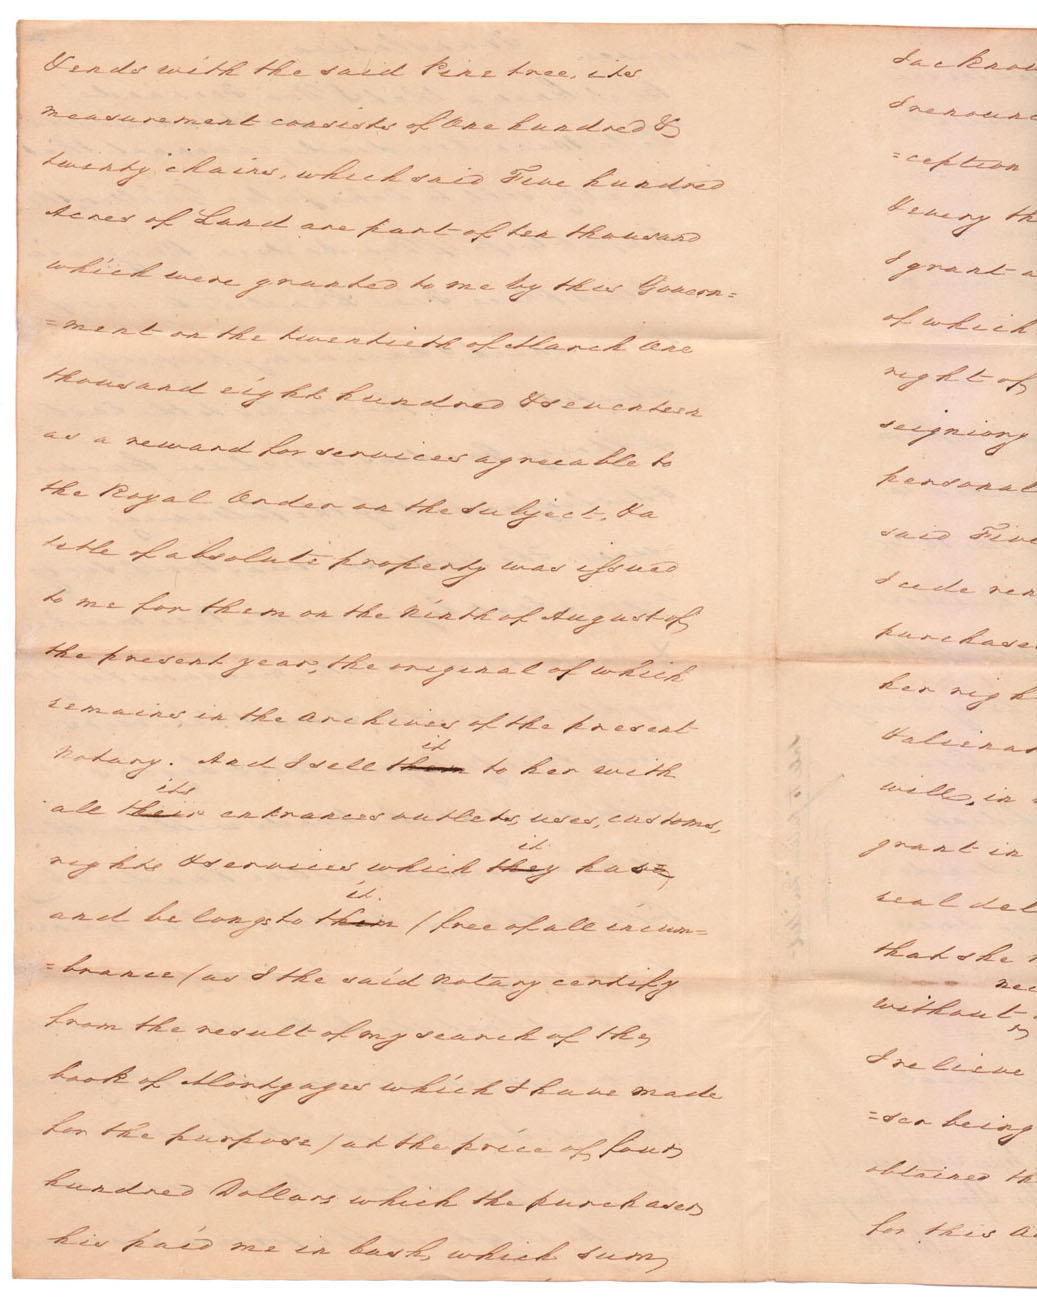 & ends with the said Pine tree, its
measurement consists of One hundred &
twenty chains, which said Five hundred
Acres of Land are part of ten thousand
which were granted to me by this Govern=
=ment on the twentieth of March One
thousand eight hundred & seventeen
as a reward for services agreeable to
the Royal Order on the subject, & a
title of absolute property was issued
to me for them on the Ninth of August of
the present year, the original of which
remains in the Archives of the present
Notary. And I sell them it to her with
all their its entrances outlets, uses, customs,
rights & services which they it has=
and belongs to them it. / free of all incum=
=brance / as I the said Notary certify
from the result of my search of the
book of Mortgages which I have made
for the purpose / at the price of four
hundred Dollars which the purchaser
his paid me in Cash, which sum
I acknow
I renounc
=ception
& every th
I grant a
of which
right of
seigniory
personal
said Five
I cede ren
purchase
her righ
& alienat
will, in
grant in
real del
that she
nec
without
I relieve
=ser being
obtained th
for this